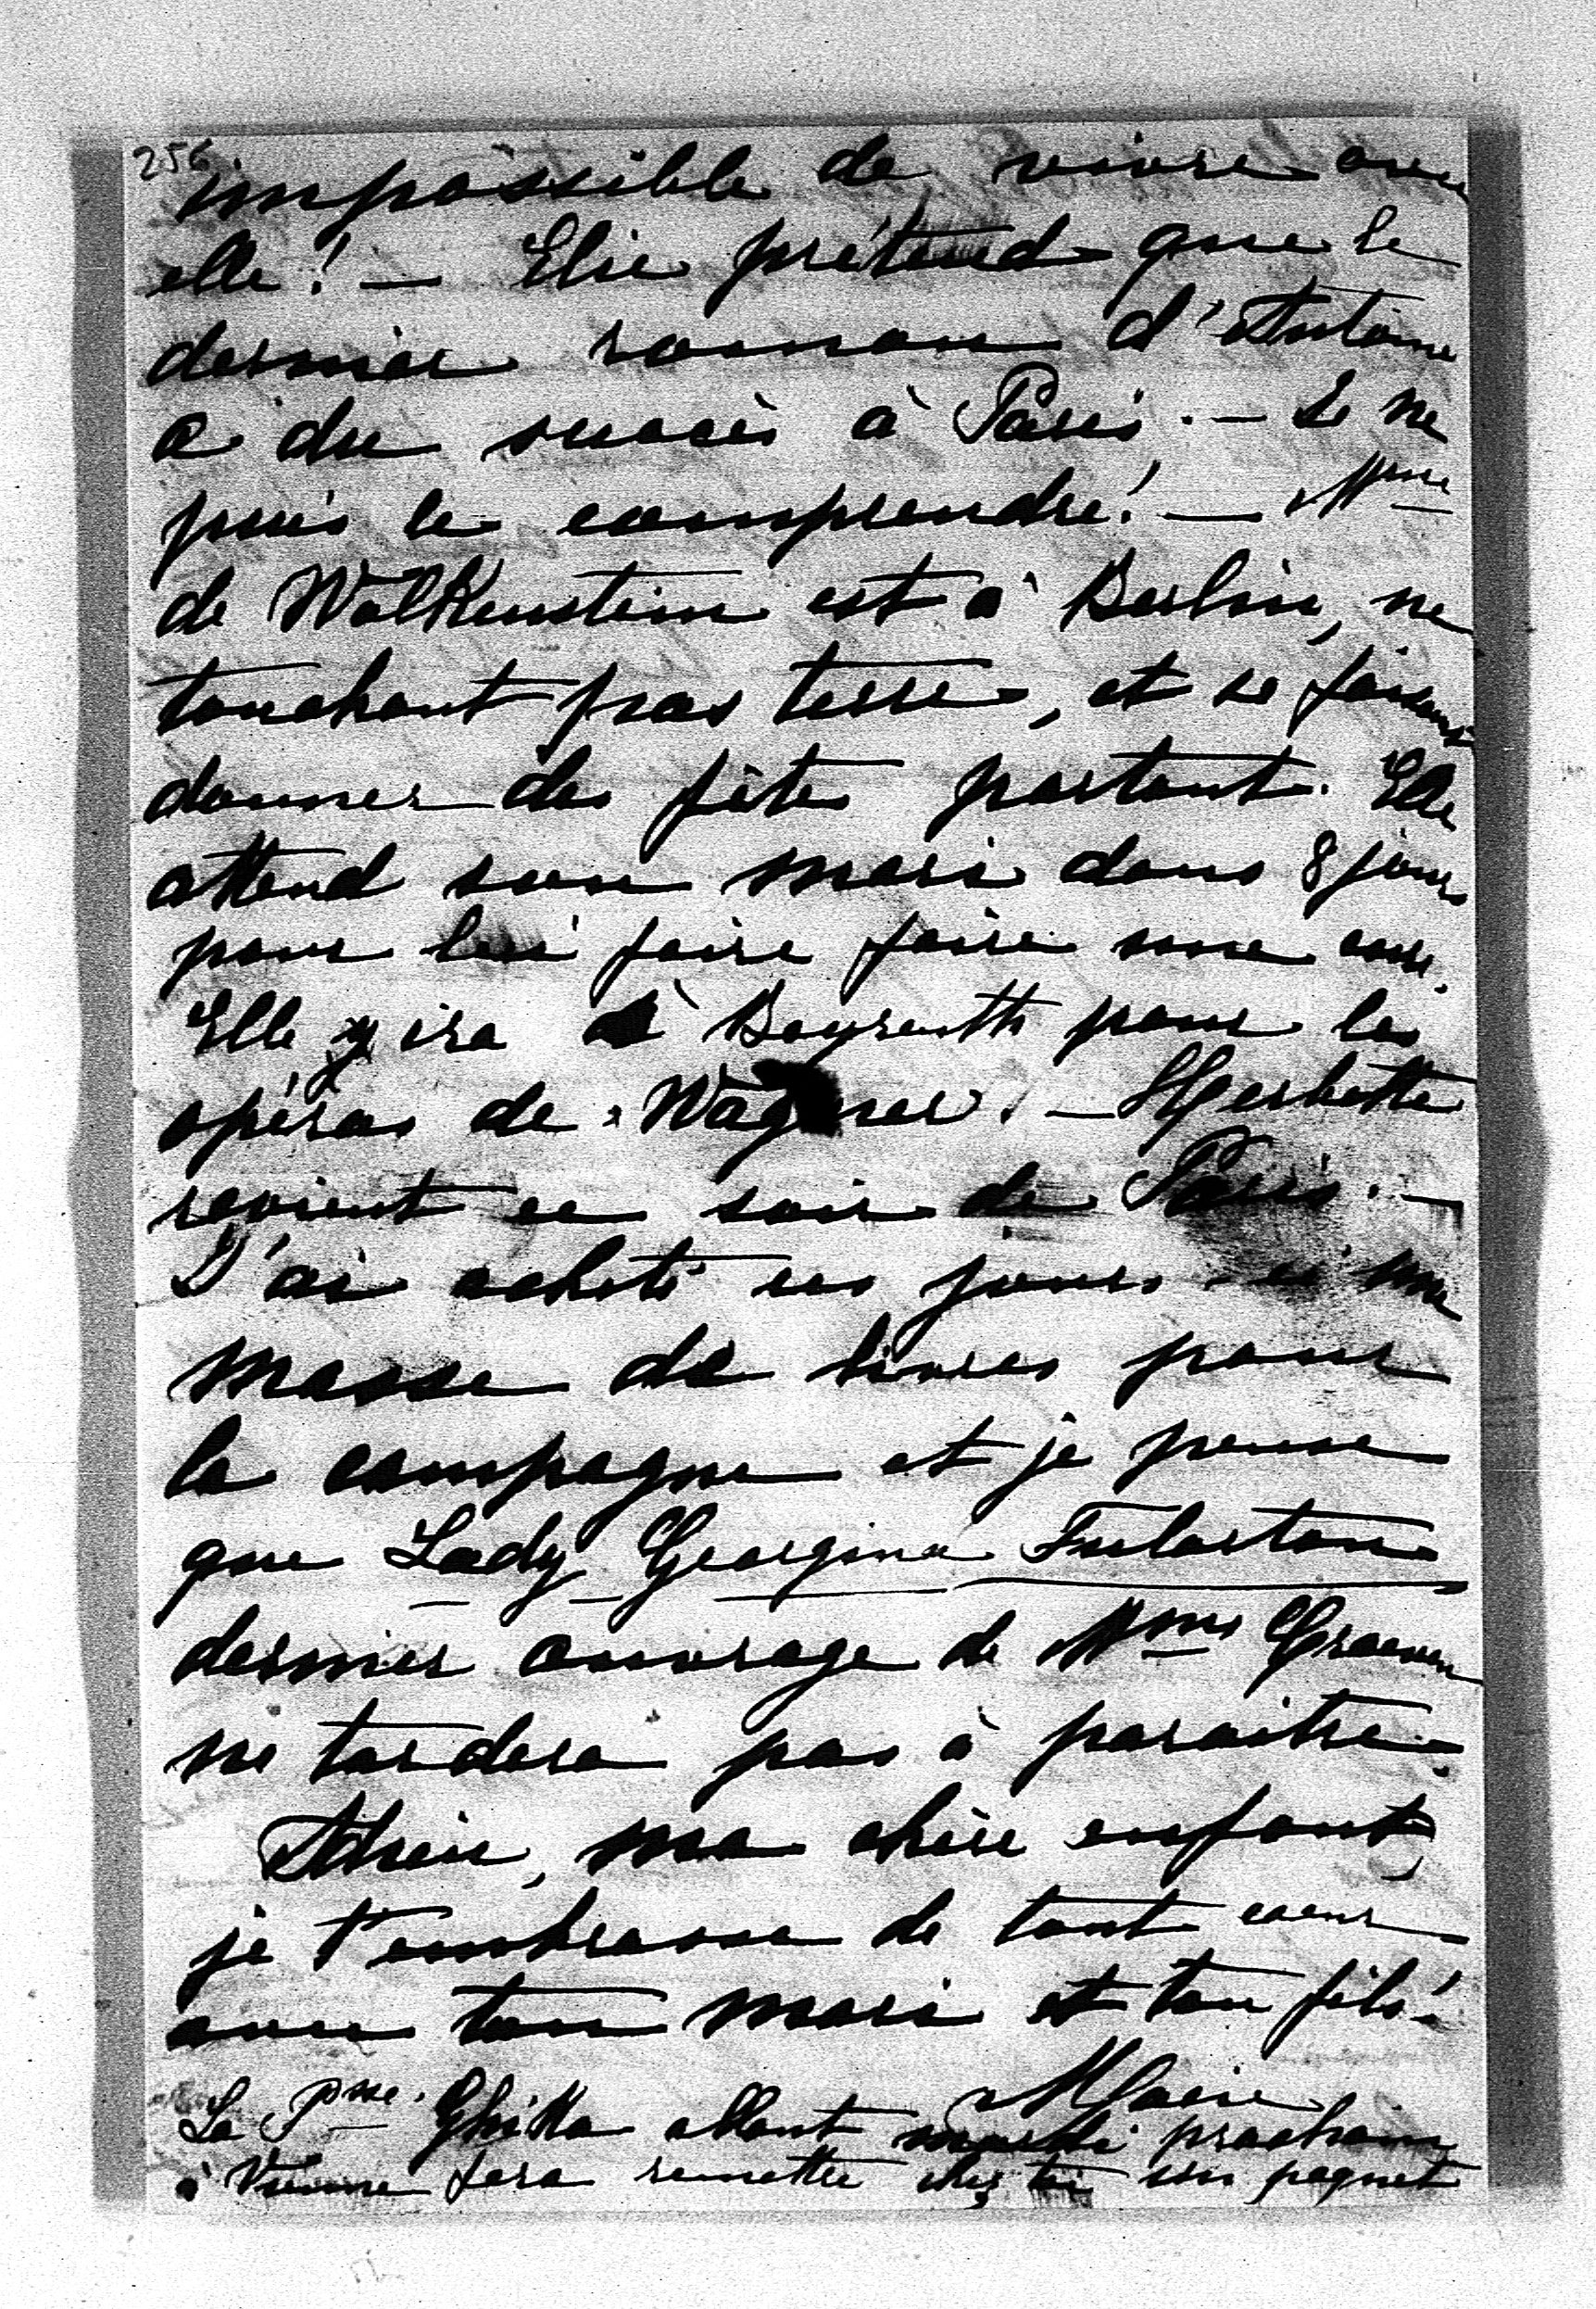 256
impossible de vivre avec
elle! — Elise prétend que le
dernier roman d'Antoine
a du succès à Paris. — Je ne
puis le comprendre! — Mme
de Wolkenstein est à Berlin, ne
touchant pas terre, et se faisant
donner des fêtes partout. Elle
attend son mari dans 8 jours
pour lui faire faire une cure.
Elle y ira à Bayreuth pour les
opéras de Wagner. — Herbette
revient ce soir de Paris. —
J'ai acheté ces jours-ci une
masse de livres pour
la campagne et je pense
que Lady Georgina Fularton
dernier ouvrage de Mme Craven
ne tardera pas à paraitre.
Adieu, ma chère enfant,
je t'embrasse de tout coeur
avec ton mari et ton fils.
Marie
La Psse Ghika allant mardi prochain
à Vienne fera remettre chez toi un paquet